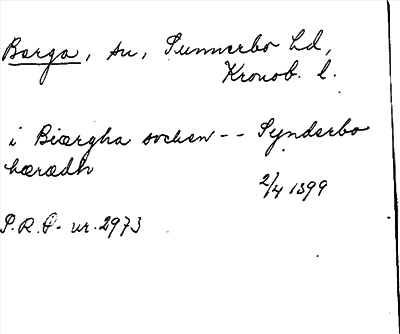 Berga, sn, Sunnerbo hd,
Kronob. l.
i Biærgha sochen -- Synderbo
hærædh
2/4 1399
P.R.P. nr. 2973